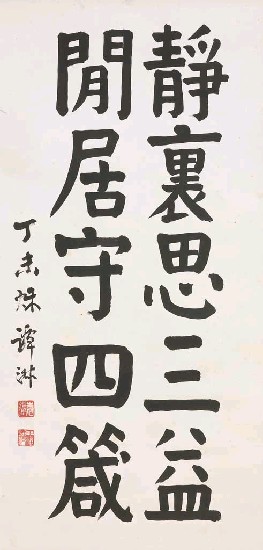 靜裏思三益
閒居守四箴
丁未秋譚淋